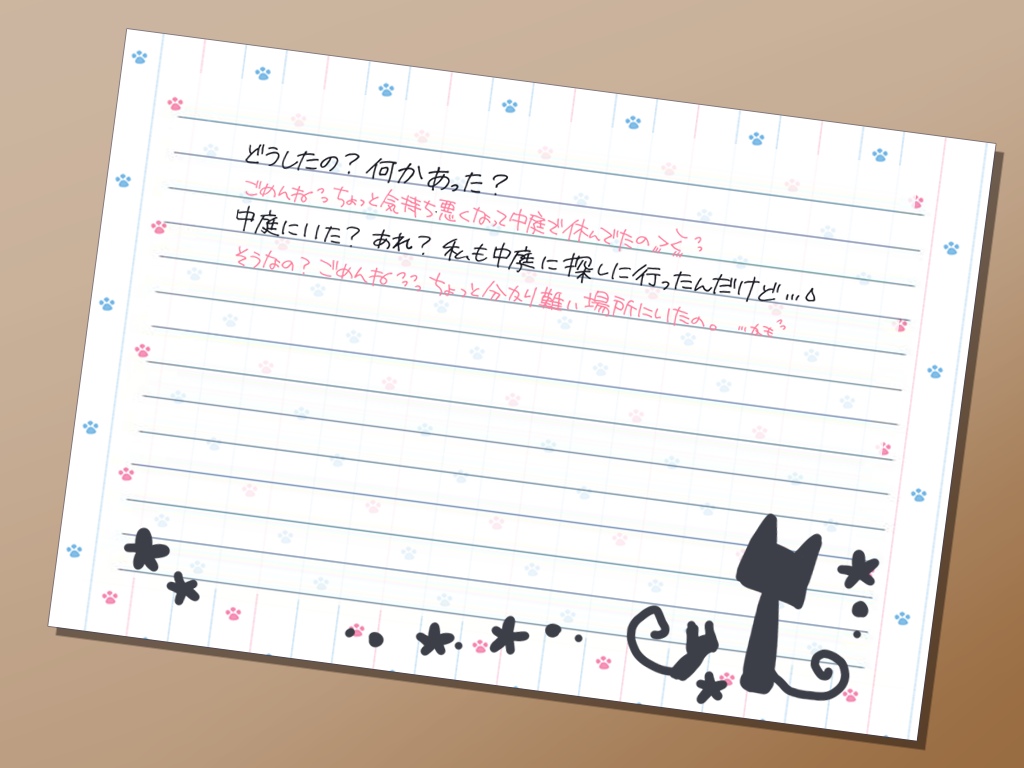 どうしたの？何かあった？
ごめんね ちょっと気持ち悪くなって中庭で休んでたの
中庭にいた？あれ？私も中庭に探しに行ったんだけど…
そうなの？ごめんね ちょっと分かり難い場所にいたの。…かも